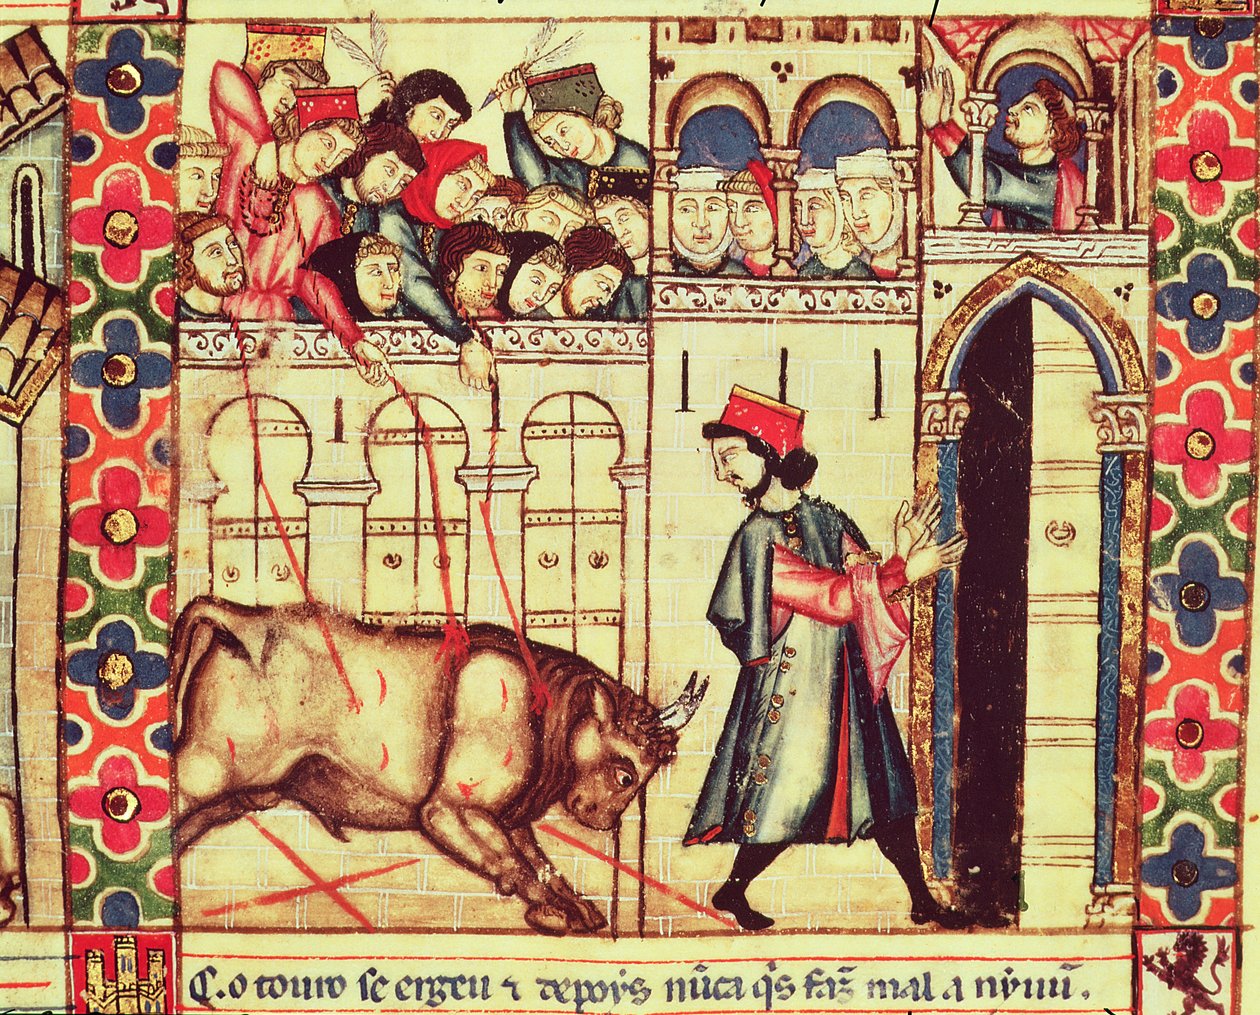 C. o touro se ergeu ⁊ depoýs nũca q̇s faz̃ mal a nỹuũ.